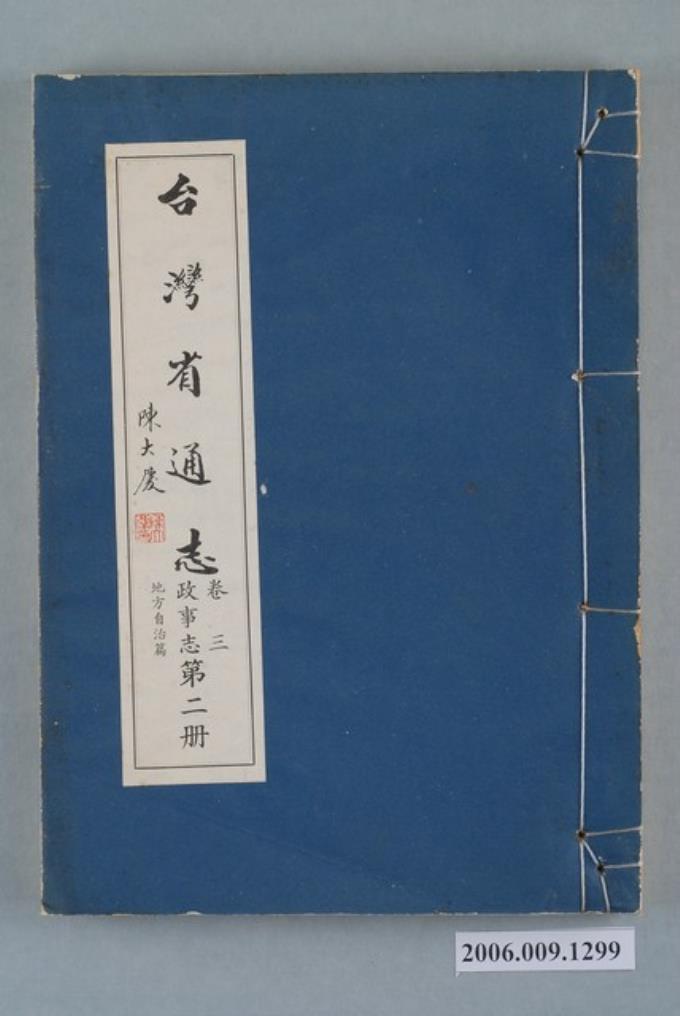 台灣省通志
卷三
政事志第二册
地方自治篇
陳大慶
2006.009.1299